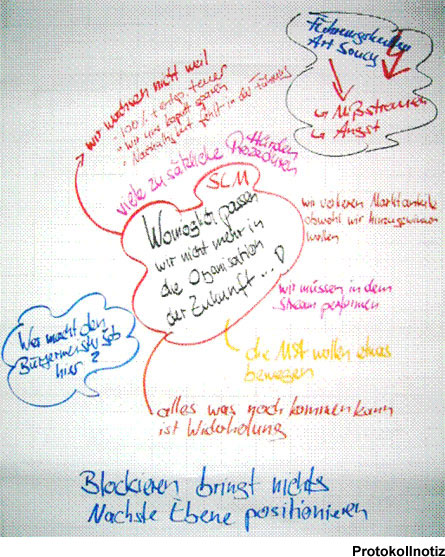 Führungskultur
Art Soucy
↳ Mißtrauen
↳ Angst
wir wachsen nicht weil
- 100% Entgo. teuer
- Wir uns kaputt sparen
- Nachhaltigkeit fehlt in der Führung
viele zusätzliche Hürden
Prozeduren
SLM
Womöglich passen
wir nicht mehr in
die Organisation
der Zukunft...
wir verlieren Marktanteile
obwohl wir hinzugewinnen
wollen
wir müssen in dem
Stream performen
die MSt wollen etwas
bewegen
Wer macht den
Bürgermeisterjob
hier?
alles was noch kommen kann
ist Wiederholung
Blockieren bringt nichts
Nächste Ebene positionieren
Protokollnotiz